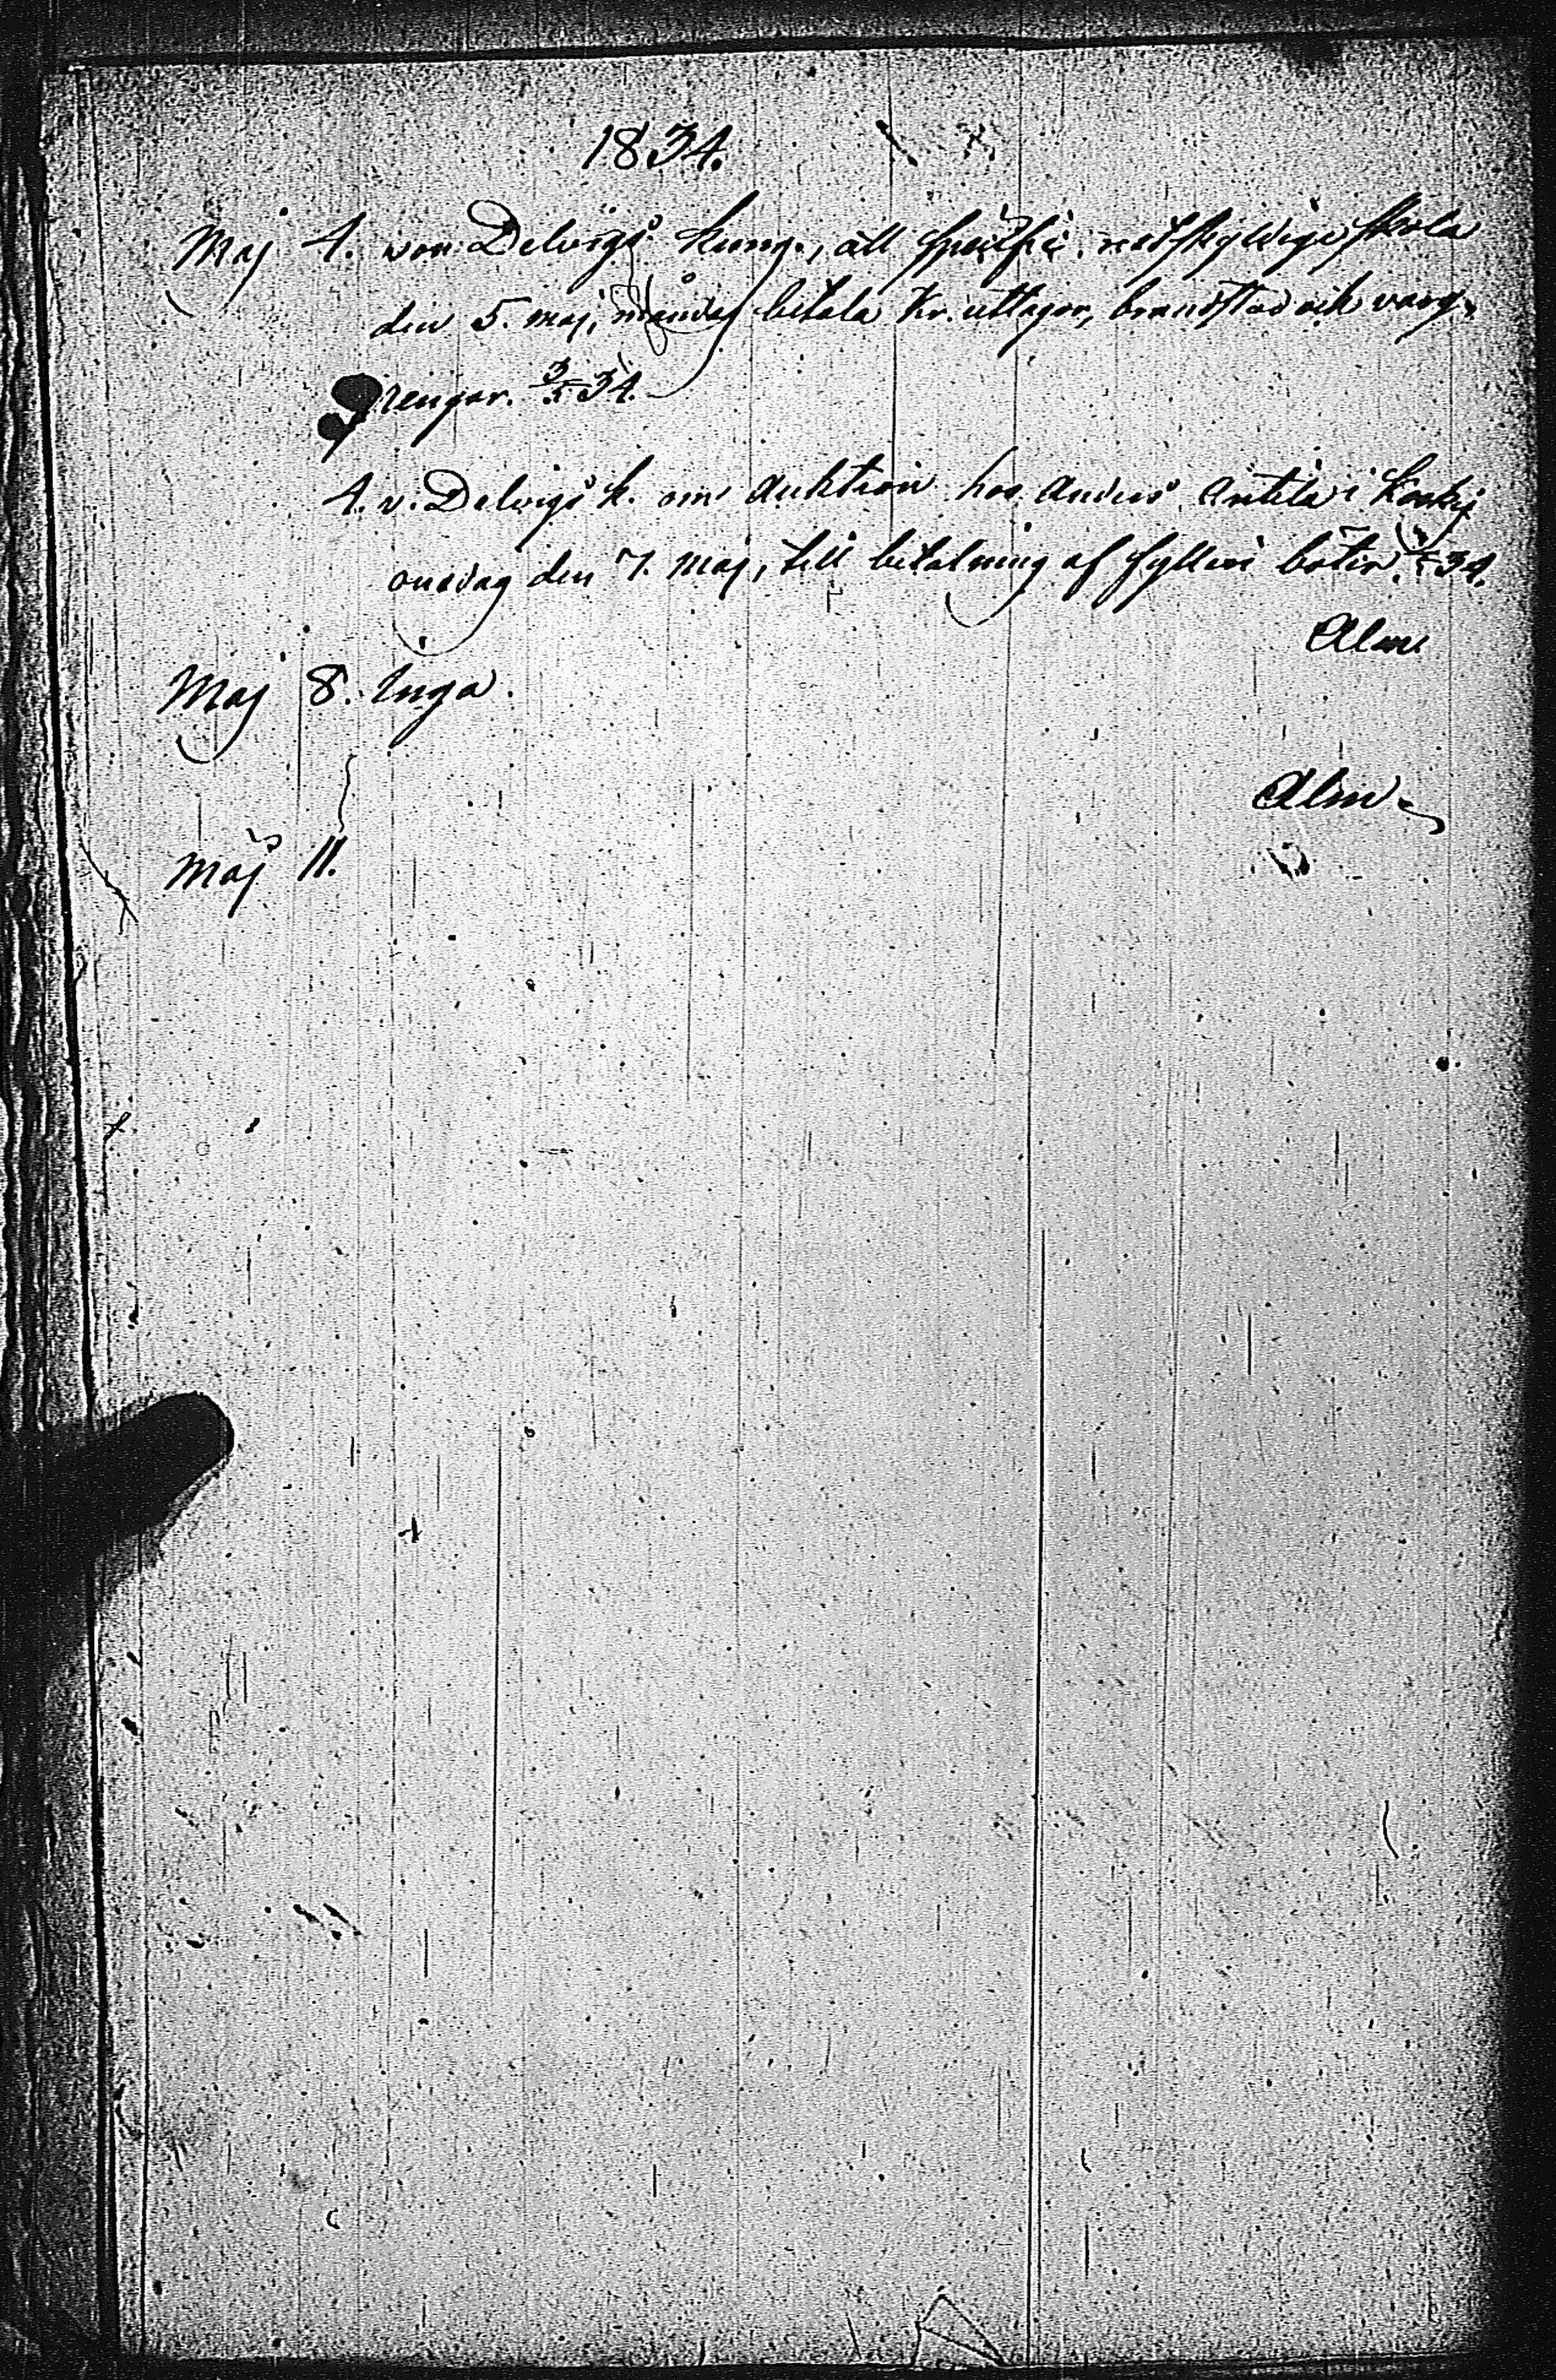 1834.
Maj 4. von Delvigs kung., att specifi. restskyldige skola
den 5. maj, måndag betala Kr. utlagor, brandstod och varg-
penger. 3/5 34.
4. v. Delvigs k. om auktion hos Anders Antila i Koski
onsdag den 7. Maj, till betalning af fylleri böter. 34.
Alm
Maj 8. Inga.
Alm
Maj 11.